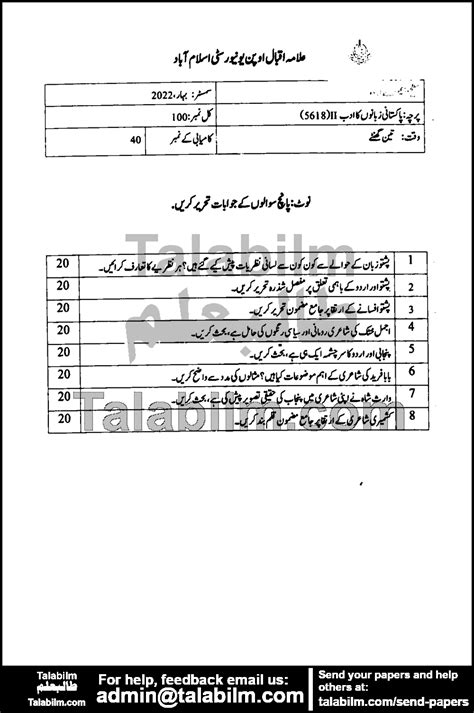 علامہ اقبال اوپن یونیورسٹی اسلام آباد
سمسٹر: بہار، 2022
پرچہ: پاکستانی زبانوں کا ادب II (5618) کل نمبر: 100
وقت: تین گھنٹے کامیابی کے نمبر 40
نوٹ: پانچ سوالوں کے جوابات تحریر کریں۔
Talabilm
طالبعلم
1 پشتو زبان کے حوالے سے کون کون سے لسانی نظریات پیش کیے گئے ہیں؟ ہر نظریے کا تعارف کرائیں۔ 20
2 پشتو اور اردو کے باہمی تعلق پر مفصل شذرہ تحریر کریں۔ 20
3 پشتو افسانے کے ارتقا پر جامع مضمون تحریر کریں۔ 20
4 اجمل خٹک کی شاعری رومانی اور سیاسی رنگوں کی حامل ہے، بحث کریں۔ 20
5 پنجابی اور اردو کا سرچشمہ ایک ہی ہے، بحث کریں۔ 20
6 بابا فرید کی شاعری کے اہم موضوعات کیا ہیں؟ مثالوں کی مدد سے واضح کریں۔ 20
7 وارث شاہ نے اپنی شاعری میں پنجاب کی حقیقی تصویر پیش کی ہے، بحث کریں۔ 20
8 کشمیری شاعری کے ارتقا پر جامع مضمون قلم بند کریں۔ 20
Talabilm.com
Talabilm
طالبعلم
For help, feedback email us:
admin@talabilm.com
Send your papers and help
others at:
talabilm.com/send-papers